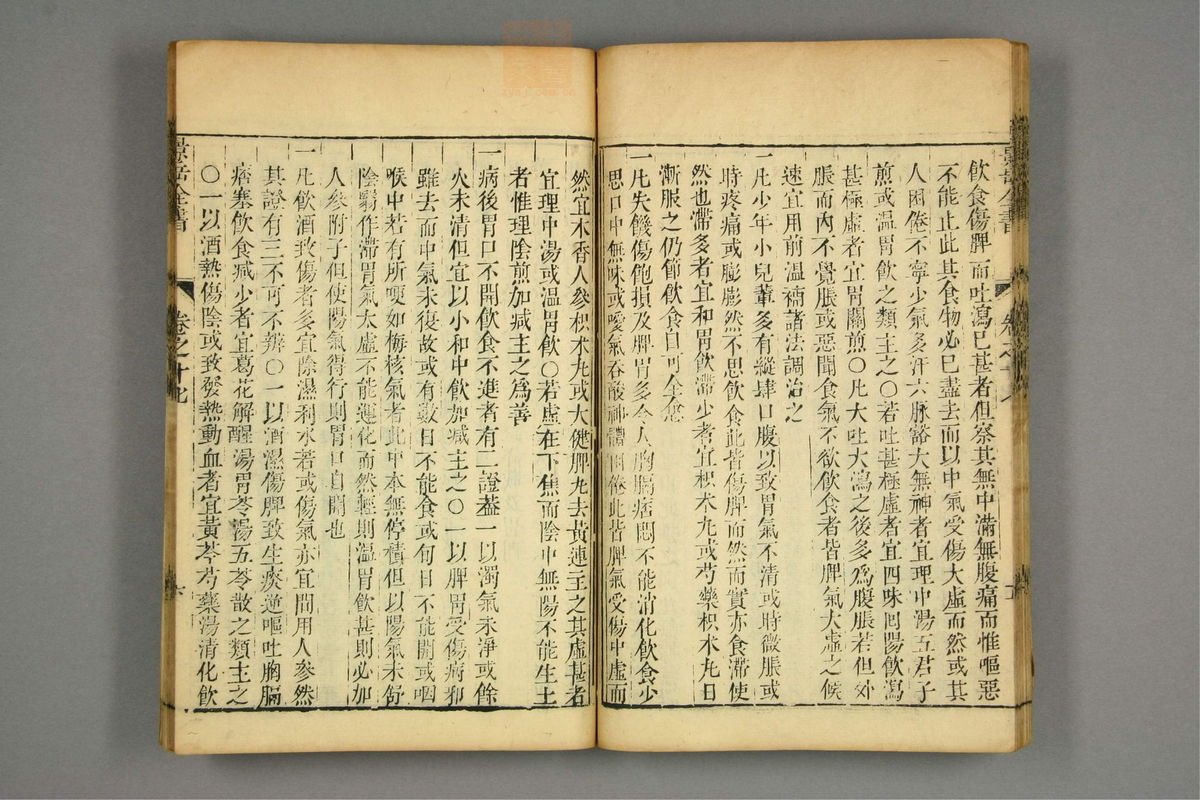 飲食傷脾而吐瀉已甚者但察其無中滿無腹痛而惟嘔惡
不能止此其食物必已盡去而以中氣受傷大虛而然或其
人困倦不寧少氣多汗六脉豁大無神者宜理中湯五君子
煎或溫胃飲之類主之〇若吐甚極虛者宜四味回陽飲瀉
甚極虛者宜胃關煎〇凡大吐大瀉之後多爲腹脹若但外
脹而內不覺脹或惡聞食氣不欲飲食者皆脾氣大虛之候
速宜用前溫補諸法調治之
一凡少年小兒輩多有縱肆口腹以致胃氣不清或時微脹或
時疼痛或膨膨然不思飲食此皆傷脾而然而實亦食滯使
然也滯多者宜和胃飲滯少者宜枳朮丸或芍藥枳朮丸日
漸服之仍節飲食自可全愈
一凡失饑傷飽損及脾胃多令人胸膈痞悶不能消化飲食少
思口中無味或噯氣吞酸神體困倦此皆脾氣受傷中虛而
然宜木香人參枳朮丸或大健脾丸去黃連主之其虛甚者
宜理中湯或溫胃飲〇若虛在下焦而陰中無陽不能生土
者惟理陰煎加減主之爲善
一病後胃口不開飲食不進者有二證蓋一以濁氣未淨或餘
火未清但宜以小和中飲加減主之〇一以脾胃受傷病邪
雖去而中氣未復故或有數日不能食或旬日不能開或咽
喉中若有所哽如梅核氣者此中本無停積但以陽氣未舒
陰翳作滯胃氣太虛不能運化而然輕則溫胃飲甚則必加
人參附子但使陽氣得行則胃口自開也
一凡飲酒致傷者多宜除濕利水若或傷氣亦宜間用人參然
其證有三不可不辨〇一以酒濕傷脾致生痰逆嘔吐胸膈
痞塞飲食減少者宜葛花解醒湯胃苓湯五苓散之類主之
〇一以酒熱傷陰或致發熱動血者宜黃芩芍藥湯清化飲
景岳全書
卷之十七